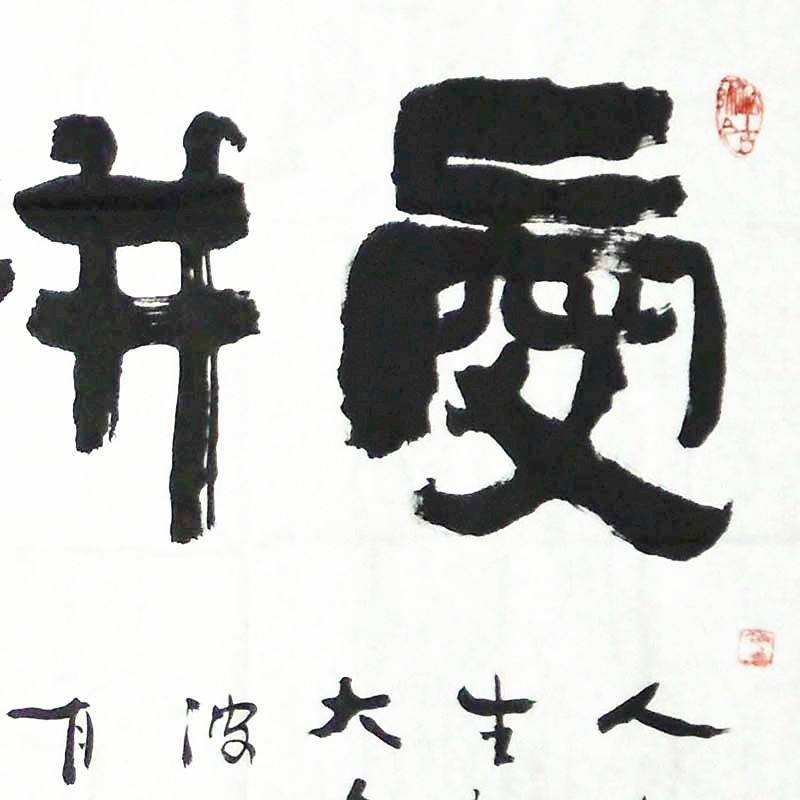 愛拼
人
生
大
波
有